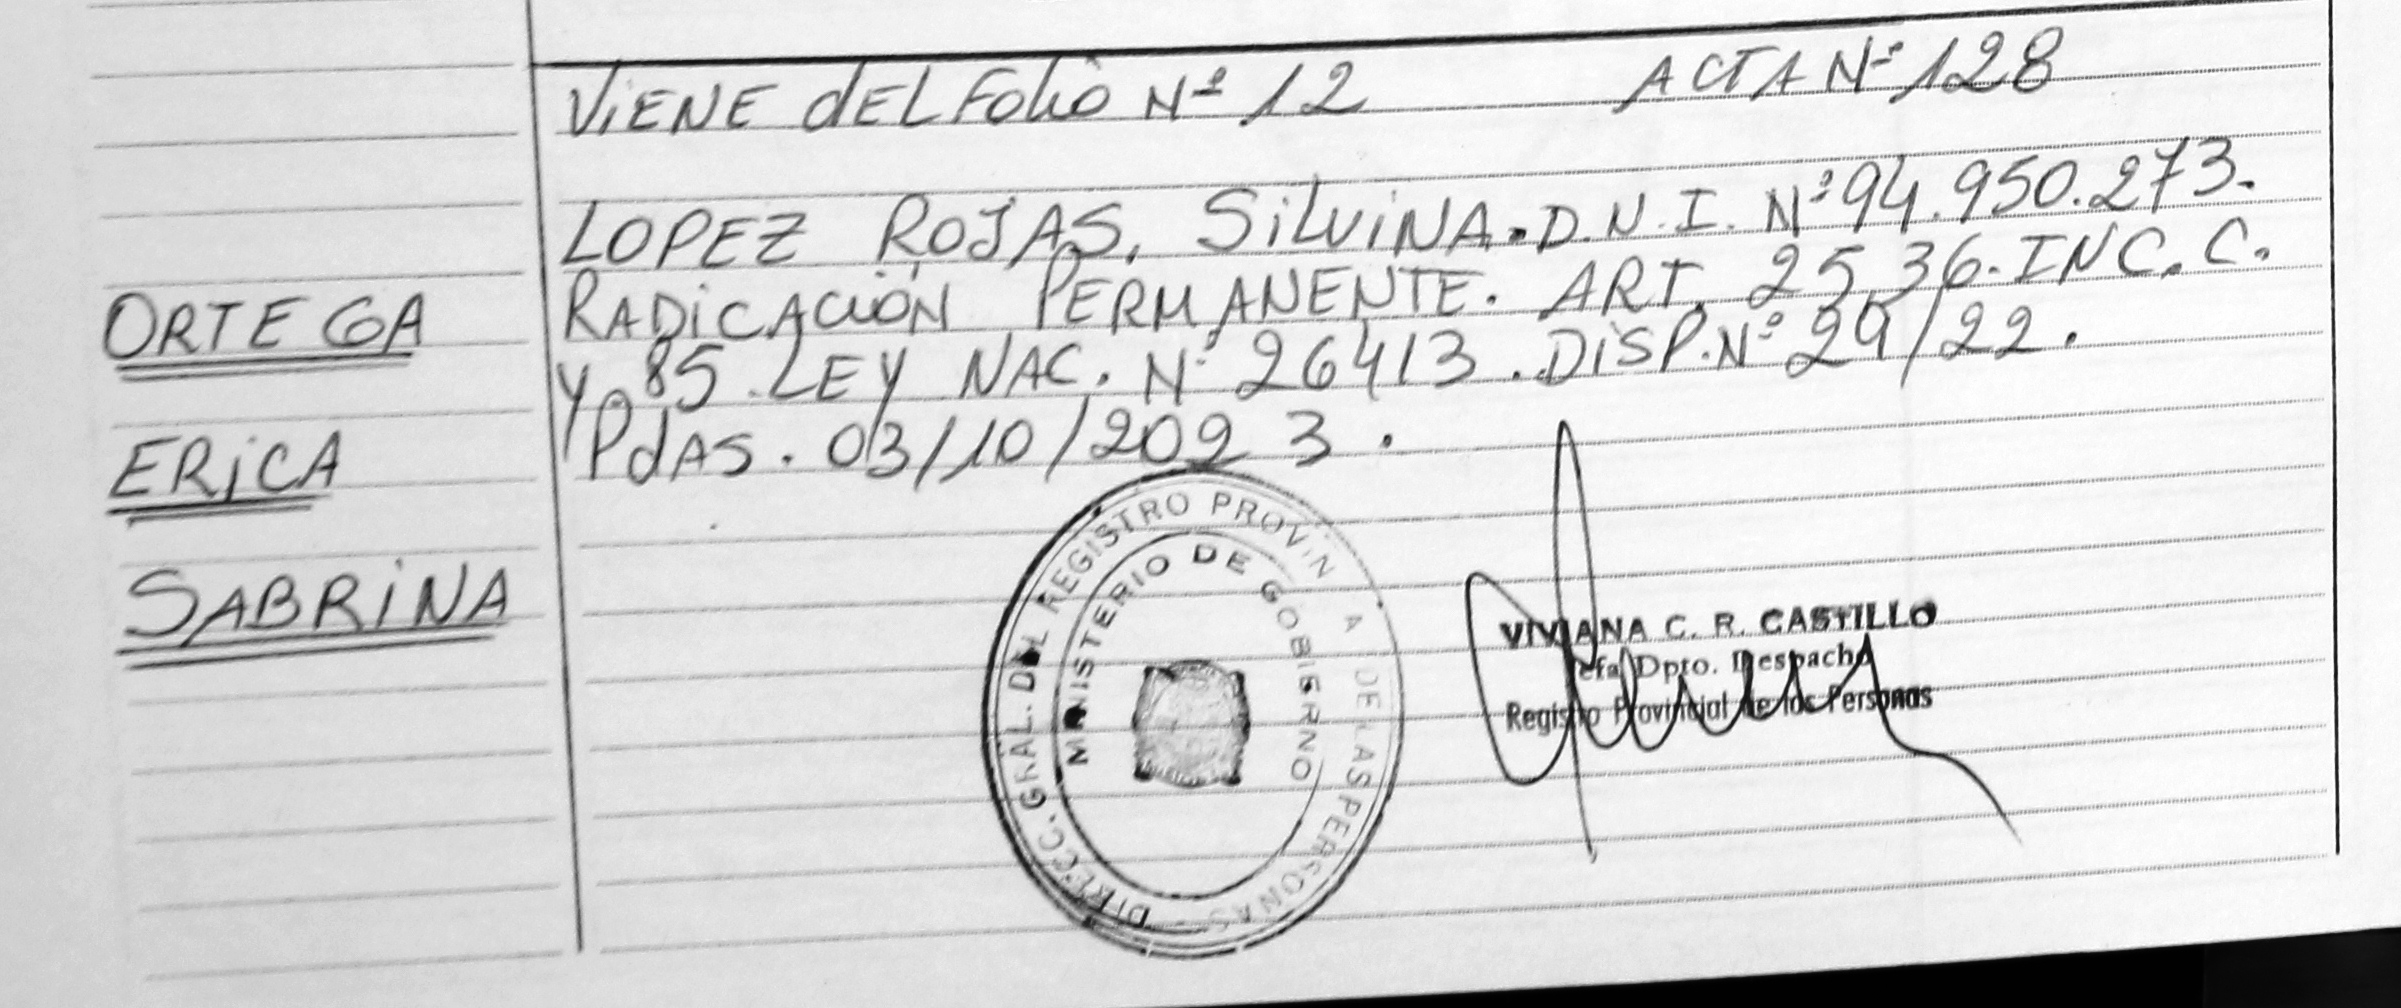 VIENE dEL Folio Nº 12 ACTA Nº 128
LOPEZ ROJAS, SILVINA. D.N.I. Nº 94.950.273.
RADICACIÓN PERMANENTE. ART. 25, 36. INC. C.
Y 85. LEY NAC. Nº 26413. DISP. Nº 29/22.
PdAS. 03/10/2023.
ORTEGA
ERICA
SABRINA
DIRECC. GRAL. DEL REGISTRO PROVIN A DE LAS PERSONAS
MINISTERIO DE GOBIERNO
VIVIANA C. R. CASTILLO
Jefa Dpto. Despacho
Registro Provincial de las Personas